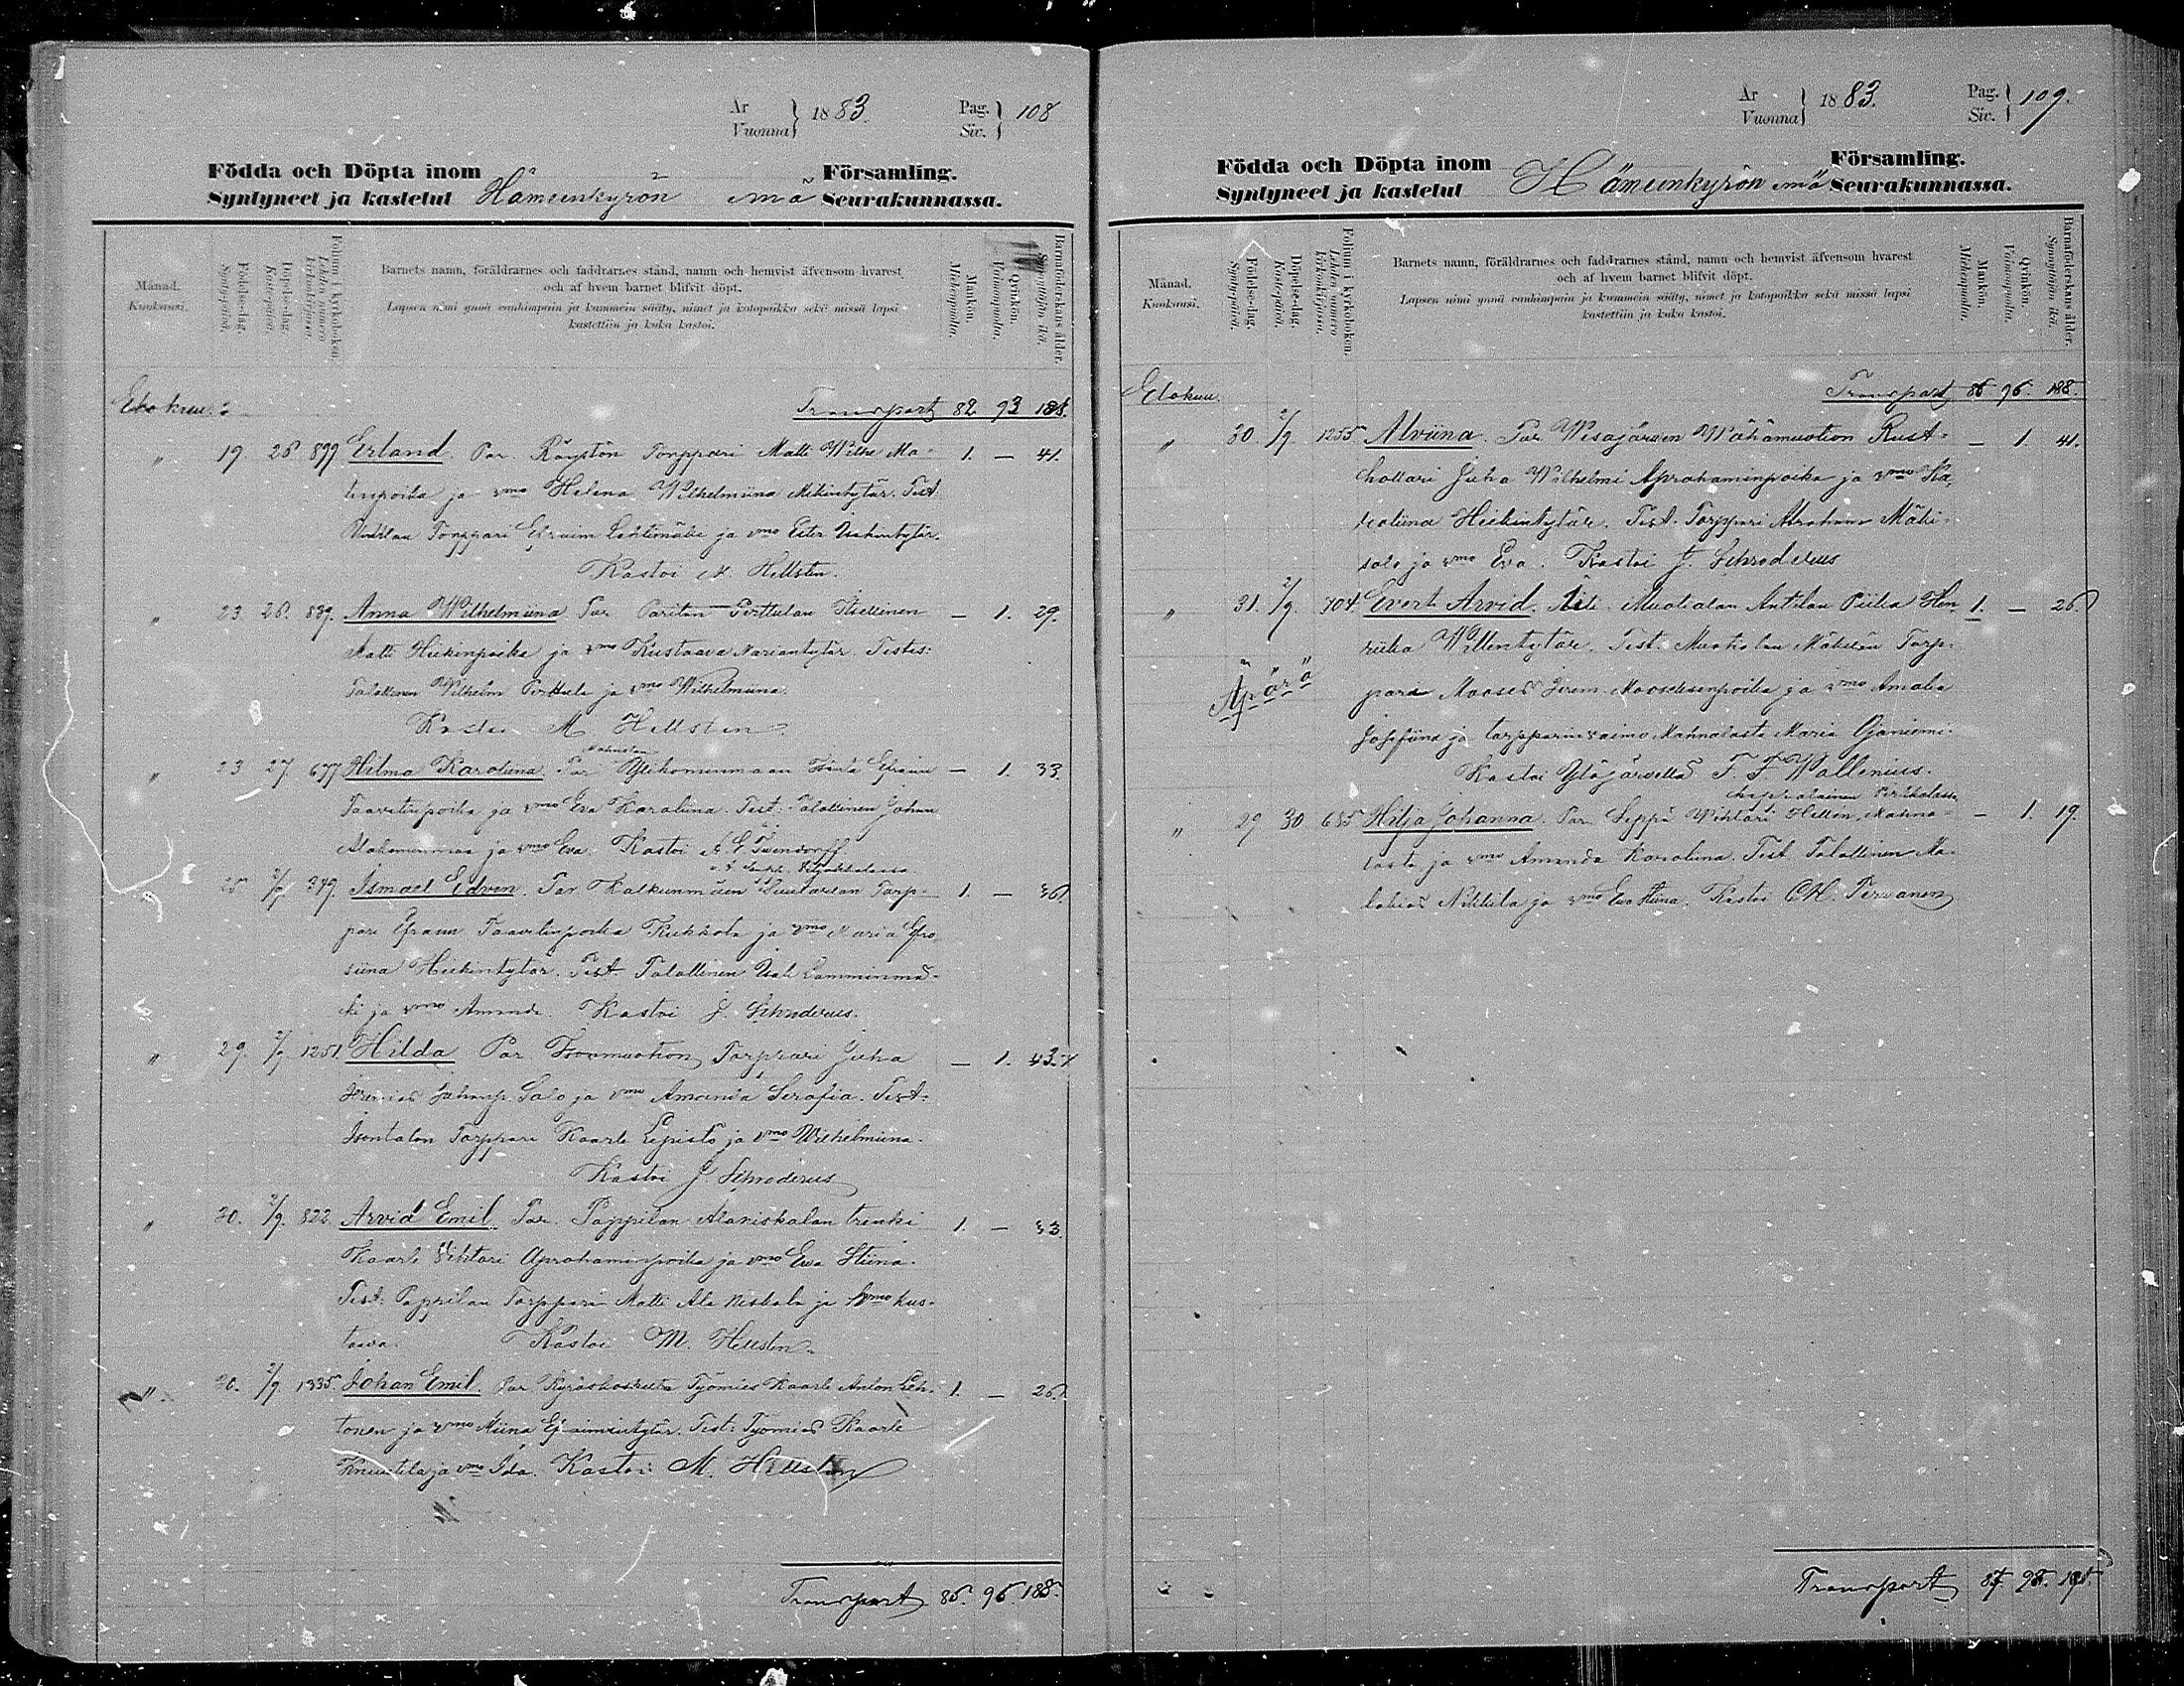 År
Vuonna } 1883.
Pag.
Siv. } 108
Födda och Döpta inom
Syntyneet ja kastetut Hämeenkyrön emä
Församling.
Seurakunnassa.
Månad.
Kuukausi.
Födelse-dag.
Syntypäivä.
Döpelse-dag.
Kastepäivä.
Folium i kyrkoboken.
Lehden numero kirkonkirjassa.
Barnets namn, föräldrarnes och faddrarnes stånd, namn och hemvist äfvensom hvarest
och af hvem barnet blifvit döpt.
Lapsen nimi ynnä vanhimpain ja kummein sääty, nimet ja kotopaikka sekä missä lapsi
kastettiin ja kuka kastoi.
Mankön.
Miehenpuolta.
Qvinkön.
Vaimonpuolta.
Barnaföderskans ålder.
Synnyttäjän ikä.
Elokuu. Transport 82 93
" 19 26 899 Erland. Par. Röystön Torppari Matti Wilhe Ma- 1. — 41.
tinpoika ja vmo Helena Wilhelmiina Mikintytär. Test.
Torppari Efraim Lehtimäki ja vmo Ester Isakintytär.
Kastoi M. Hellsten.
" 23 26. 839. Anna Wilhelmiina. Par. Parilan Perttulan Itsellinen — 1. 29.
Matti Heikinpoika ja vmo Kustaava Testes:
Talollinen Wilhelm Perttula ja vmo Wilhelmiina.
Kastoi M Hellsten.
" 23 27 677 Hilma Karoliina. Par. Efraim — 1. 33.
Taavetinpoika ja vmo Eva Karoliina. Test: Talollinen Johan
ja vmo Eva. Kastoi A. E. Twendorff
25 2/9. 349. Ismael Edvin. Par. Kalkunmäen Torp- 1. — 36
pari Efraim Taavetinpoika Kukkola ja vmo Maria Efro-
siina Heikintytär. Test. Talollinen Isak Lamminmä-
ki ja vmo Amanda. Kastoi J. Schroderus.
" 29. 2/9 1251. Hilda Par. Torppari Juha — 1. 43.
Jeremias Juhanp. Salo ja vmo Amanda Serafia. Test.
Isontalon Torppari Kaarle Lepistö ja vmo Wilhelmiina.
Kastoi J. Schroderus
" 30. 2/9. 822. Arvid Emil. Par. Pappilan Alaniskalan trenki 1. — 33.
Kaarle Vihtori Aprohaminpoika ja vmo Eva Stiina.
Test: Pappilan Torppari Matti Ala Niskala ja vmo Kus-
taava. Kastoi M. Hellsten.
" 30. 2/9 1335. Johan Emil. Par. Kyröskoskelta Työmies Kaarle Anton Leh- 1. — 26.
tonen ja vmo Miina Efraimintytär. Test: Työmies Kaarle
Knuutila ja vmo Ida. Kastoi M. Hellsten
Transport 86. 96 188.
År
Vuonna } 1883.
Pag.
Siv. } 109.
Födda och Döpta inom
Syntyneet ja kastetut Hämeenkyrön emä
Församling.
Seurakunnassa.
Månad.
Kuukausi.
Födelse-dag.
Syntypäivä.
Döpelse-dag.
Kastepäivä.
Folium i kyrkoboken.
Lehden numero kirkonkirjassa.
Barnets namn, föräldrarnes och faddrarnes stånd, namn och hemvist äfvensom hvarest
och af hvem barnet blifvit döpt.
Lapsen nimi ynnä vanhimpain ja kummein sääty, nimet ja kotopaikka sekä missä lapsi
kastettiin ja kuka kastoi.
Mankön.
Miehenpuolta.
Qvinkön.
Vaimonpuolta.
Barnaföderskans ålder.
Synnyttäjän ikä.
Elokuu. Transport 86 96. 188.
" 30. 2/9. 1255 Alviina. Par. Wesajärven Wähämuotion Rust- — 1. 41.
hollari Juha Wilhelmi Aprahaminpoika ja vmo Ka-
roliina Heikintytär. Test. Torppari Abraham Mäki-
salo ja vmo Eva. Kastoi J. Schroderus
" 31. 2/9. 704. Evert Arvid. Äiti. Muotialan Anttilan Piika Hen- 1. — 26.
riika Willentytär. Test. Muotialan Mäkelän Torp-
Äpärä
pari Mooses Jerem. Mooseksenpoika ja vmo Amalia
Josefiina ja torpparinvaimo Mahnalasta Maria Ojaniemi.
Kastoi Ylöjärvellä F. F. Wallenius.
kappalainen
" 29 30 685 Hilja Johanna. Par. Seppä Wihtori Hellen, Mahna- — 1. 19.
lasta ja vmo Amanda Karoliina. Test. Talollinen Ma-
lakias Nikkilä ja vmo Eva Stiina. Kastoi
Transport 87. 98.